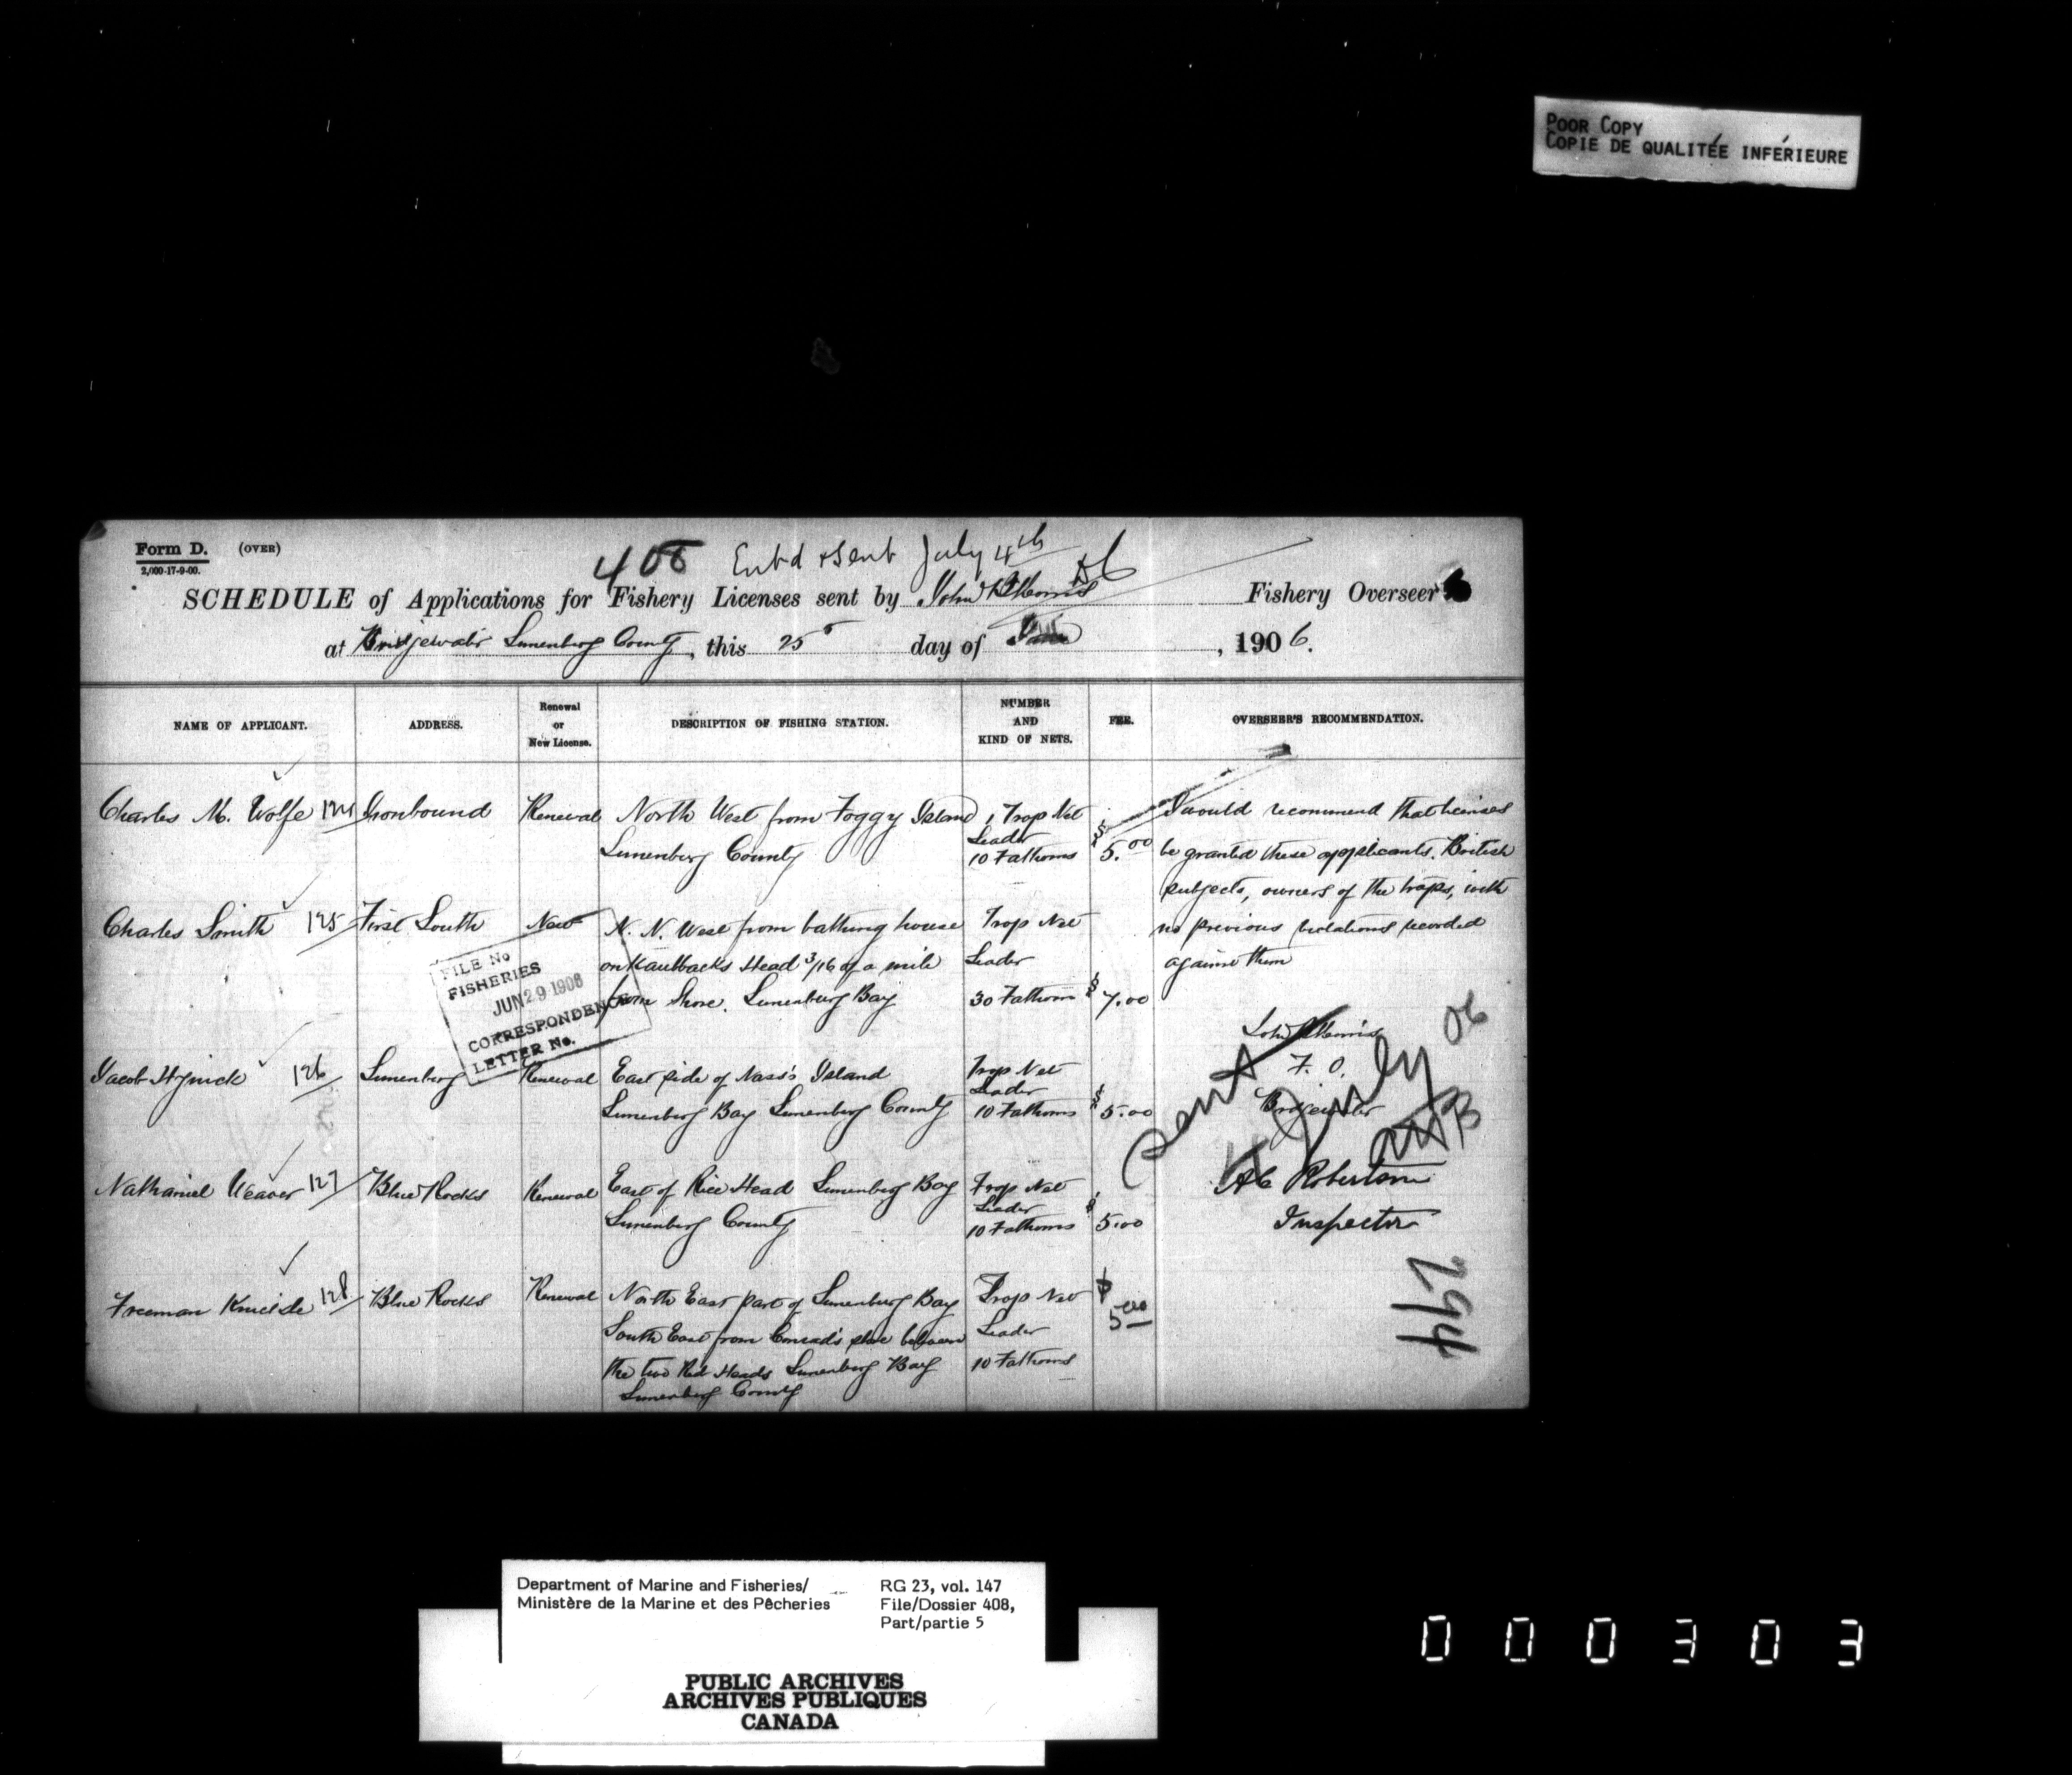 POOR COPY
COPIE DE QUALITÉE INFÉRIEURE
Form D. (OVER)
2,000-17-9-00.
408 Ent'd & Sent July 4th 06
SCHEDULE of Applications for Fishery Licenses sent by John Morris Fishery Overseer
at Bridgewater Lunenburg County, this 25 day of June, 1906.
NAME OF APPLICANT. ADDRESS. Renewal or New License. DESCRIPTION OF FISHING STATION. NUMBER AND KIND OF NETS. FEE. OVERSEER'S RECOMMENDATION.
Charles M. Wolfe 124 Ironbound Renewal North West from Foggy Island 1 Trap Net
Lunenburg County Leader
10 Fathoms $5.00
Charles Smith 125 First South New N. N. West from bathing house Trap Net
on Kaulbacks Head 3/16 of a mile Leader
from Shore. Lunenburg Bay 30 Fathom $7.00
Jacob Hynick 126 Lunenburg Renewal East side of Nass's Island Trap Net
Leader
Lunenburg Bay Lunenburg County 10 Fathoms $5.00
Nathaniel Weaver 127 Blue Rocks Renewal East of Rice Head Lunenburg Bay Trap Net
Leader
Lunenburg County 10 Fathoms $5.00
Freeman 128 Blue Rocks Renewal North East part of Lunenburg Bay Trap Net $5.00
South East from Conrad's shore between Leader
the two Red Heads Lunenburg Bay 10 Fathoms
Lunenburg County
I would recommend that licenses
be granted these applicants. British
subjects, owners of the traps, with
no previous violations recorded
against them
John Morris
F. O.
Bridgewater
Sent 4 July 06
AC Robertson
Inspector
294
FILE No
FISHERIES
JUN 29 1906
CORRESPONDENCE
LETTER No.
Department of Marine and Fisheries/
Ministère de la Marine et des Pêcheries
RG 23, vol. 147
File/Dossier 408,
Part/partie 5
PUBLIC ARCHIVES
ARCHIVES PUBLIQUES
CANADA
000303